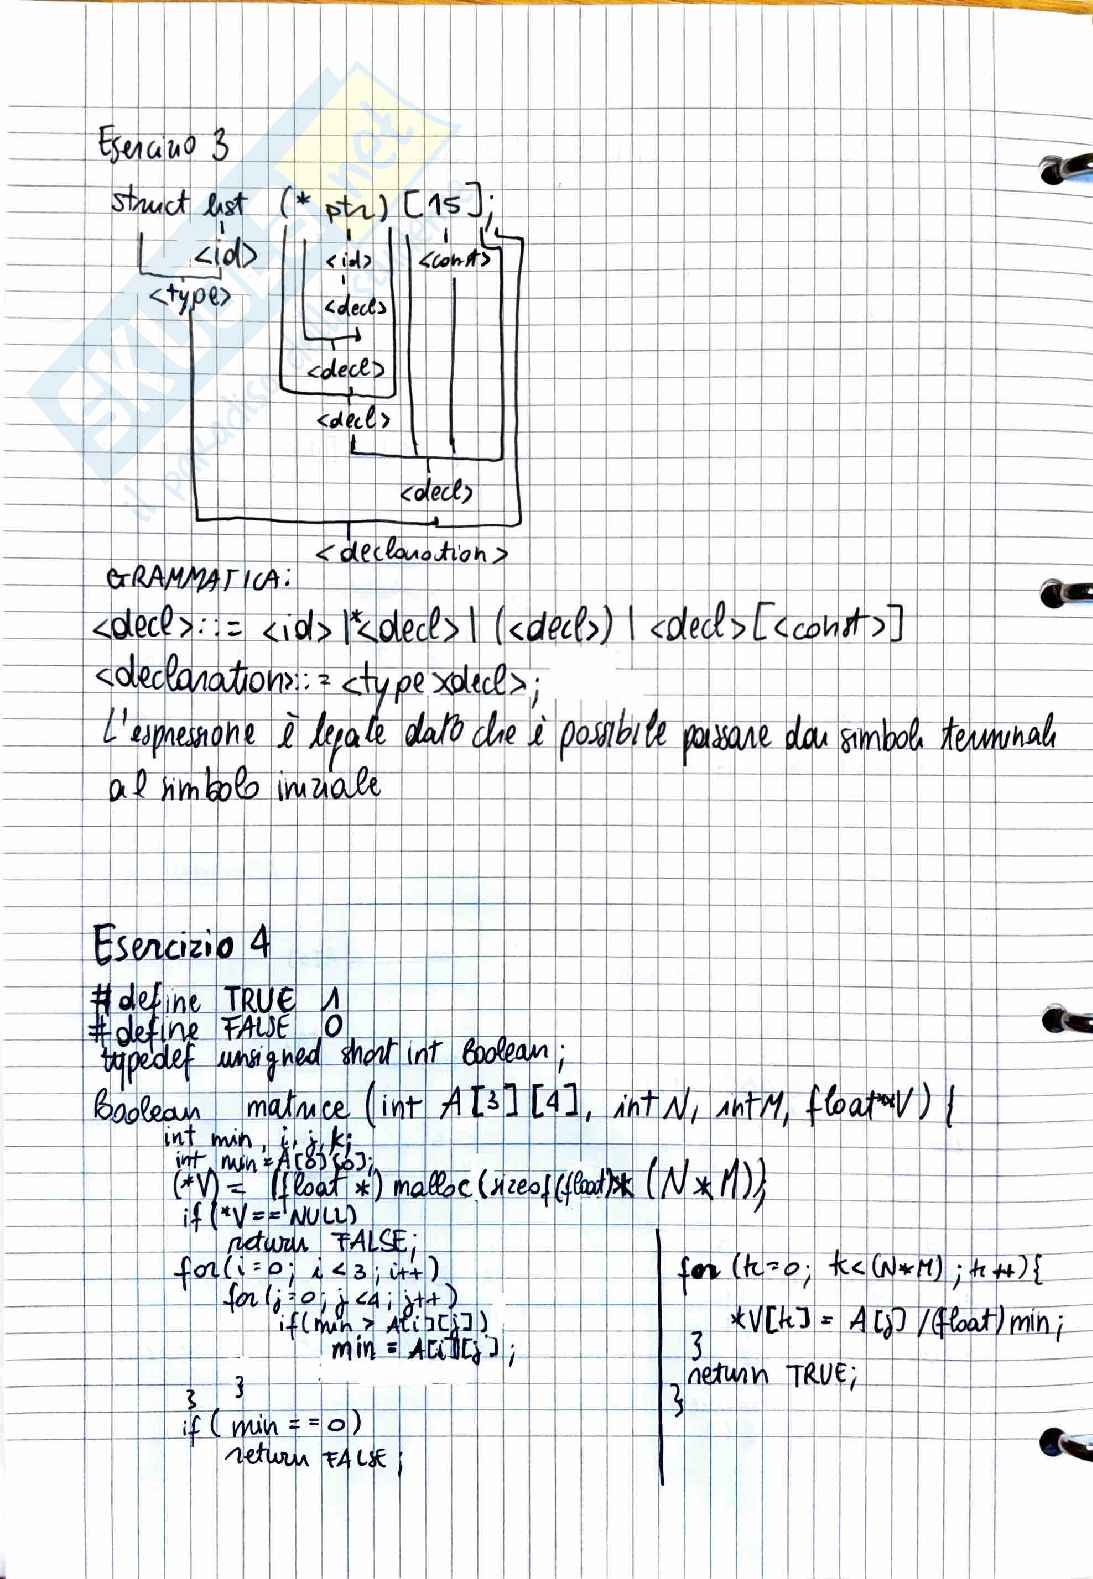 Esercizio 3
struct list (* ptr) [15];
<id> <id> <const>
<type> <decl>
<decl>
<decl>
<decl>
<declaration>
GRAMMATICA:
<decl>::= <id> |*<decl> | (<decl>) | <decl>[<const>]
<declaration>::= <type><decl>;
L'espressione è legale dato che è possibile passare dai simboli terminali
al simbolo iniziale
Esercizio 4
#define TRUE 1
#define FALSE 0
typedef unsigned short int Boolean;
Boolean matrice (int A[3][4], int N, int M, float**V) {
int min, i, j, k;
int min=A[0][0];
(*V) = (float *) malloc(sizeof(float)* (N*M));
if(*V==NULL)
return FALSE;
for(i=0; i<3; i++)
for(j=0; j<4; j++)
if(min > A[i][j])
min = A[i][j];
}
}
if( min==0)
return FALSE;
for (k=0; k<(N*M); k++){
*V[k] = A[j] /(float)min;
}
return TRUE;
}
SKUOLA.net
il paradiso